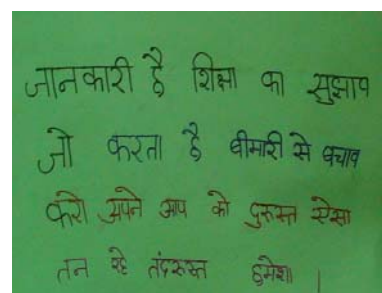 जानकारी है शिक्षा का सुझाव
जो करता है बीमारी से बचाव
करो अपने आप को दुरूस्त ऐसा
तन रहे तंदरूस्त हमेशा ।